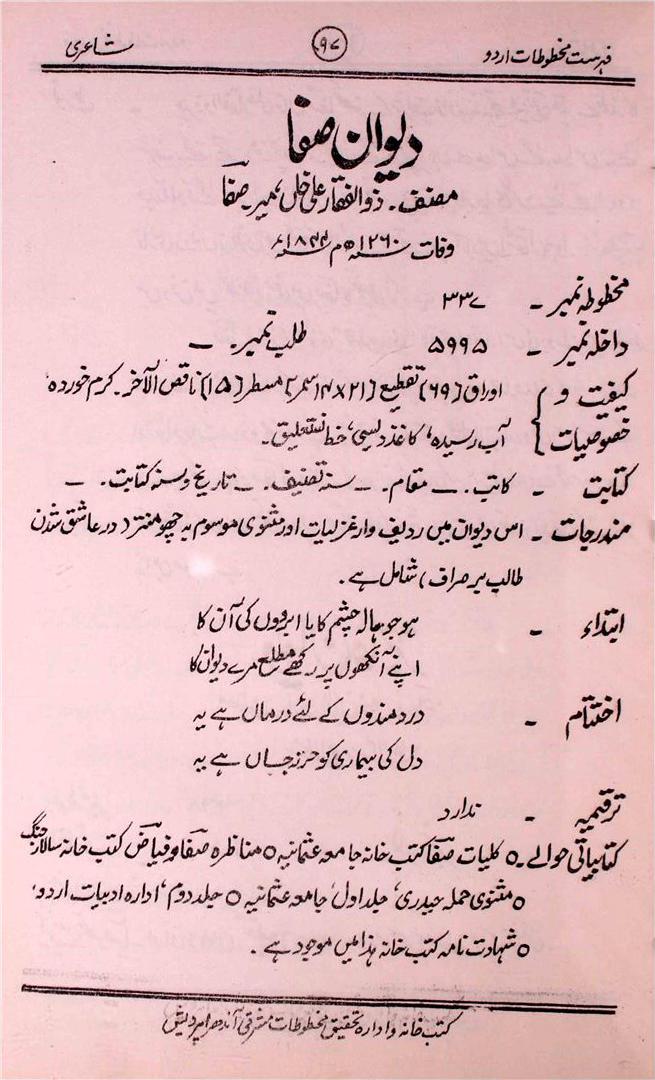 فہرست مخطوطات اردو ۹۷ شاعری
دیوان صفا
مصنف۔ ذوالفقار علی خاں نمبر۔ صفاؔ
وفات ۱۲۶۰ھ م ۱۸۴۴ء
مخطوطہ نمبر ۔ ۳۳۷
داخلہ نمبر ۔ ۵۹۹۵ طلب نمبر۔ ـ
کیفیت و خصوصیات } اوراق (۶۹) تقطیع (۲۱×۱۴) سمر مسطر (۱۵) ناقص الآخر۔ کرم خوردہ،
آب رسیدہ، کاغذ دیسی، خط نستعلیق۔
کتابت ۔ کاتب۔ ـ مقام۔ ـ سنہ تصنیف۔ ـ تاریخ و سنہ کتابت۔ ـ
مندرجات ۔ اس دیوان میں ردیف وار غزلیات اور مثنوی موسوم بہ چھو منتر (در عاشق شدن
طالب بر صراف) شامل ہے۔
ابتداء ۔ ہو جو ہالہ چشم کا یا ابروؤں کی آن کا
اپنے آنکھوں پر رکھے مطلع مرے دیوان کا
اختتام ۔ درد مندوں کے لئے درماں ہے یہ
دل کی بیماری کو حرز جاں ہے یہ
ترقیمہ ۔ ندارد
کتابیاتی حوالے۔ ٥ کلیات صفاؔ کتب خانہ جامعہ عثمانیہ ٥ مناظرہ صفاؔ و فیاضؔ کتب خانہ سالار جنگ
٥ مثنوی حملہ حیدری، جلد اول، جامعہ عثمانیہ ٥ جلد دوم، ادارہ ادبیات اردو،
٥ شہادت نامہ کتب خانہ ہذا میں موجود ہے۔
کتب خانہ و ادارہ تحقیق مخطوطات مشرقی آندھرا پردیش